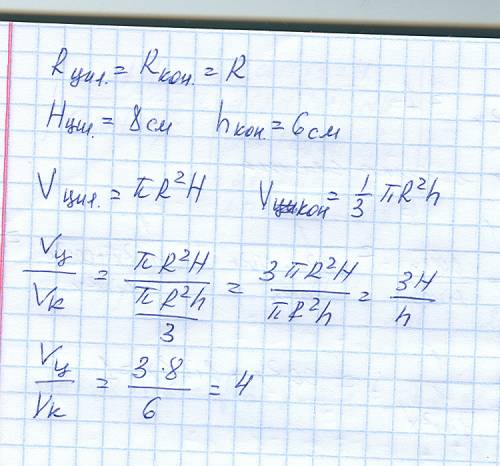 Rцил. = Rкон. = R
Hцил. = 8см hкон. = 6см
Vцил. = πR²H Vкон = 1/3 πR²h
Vц/Vк = πR²H/(πR²h/3) = 3πR²H/πR²h = 3H/h
Vц/Vк = 3·8/6 = 4